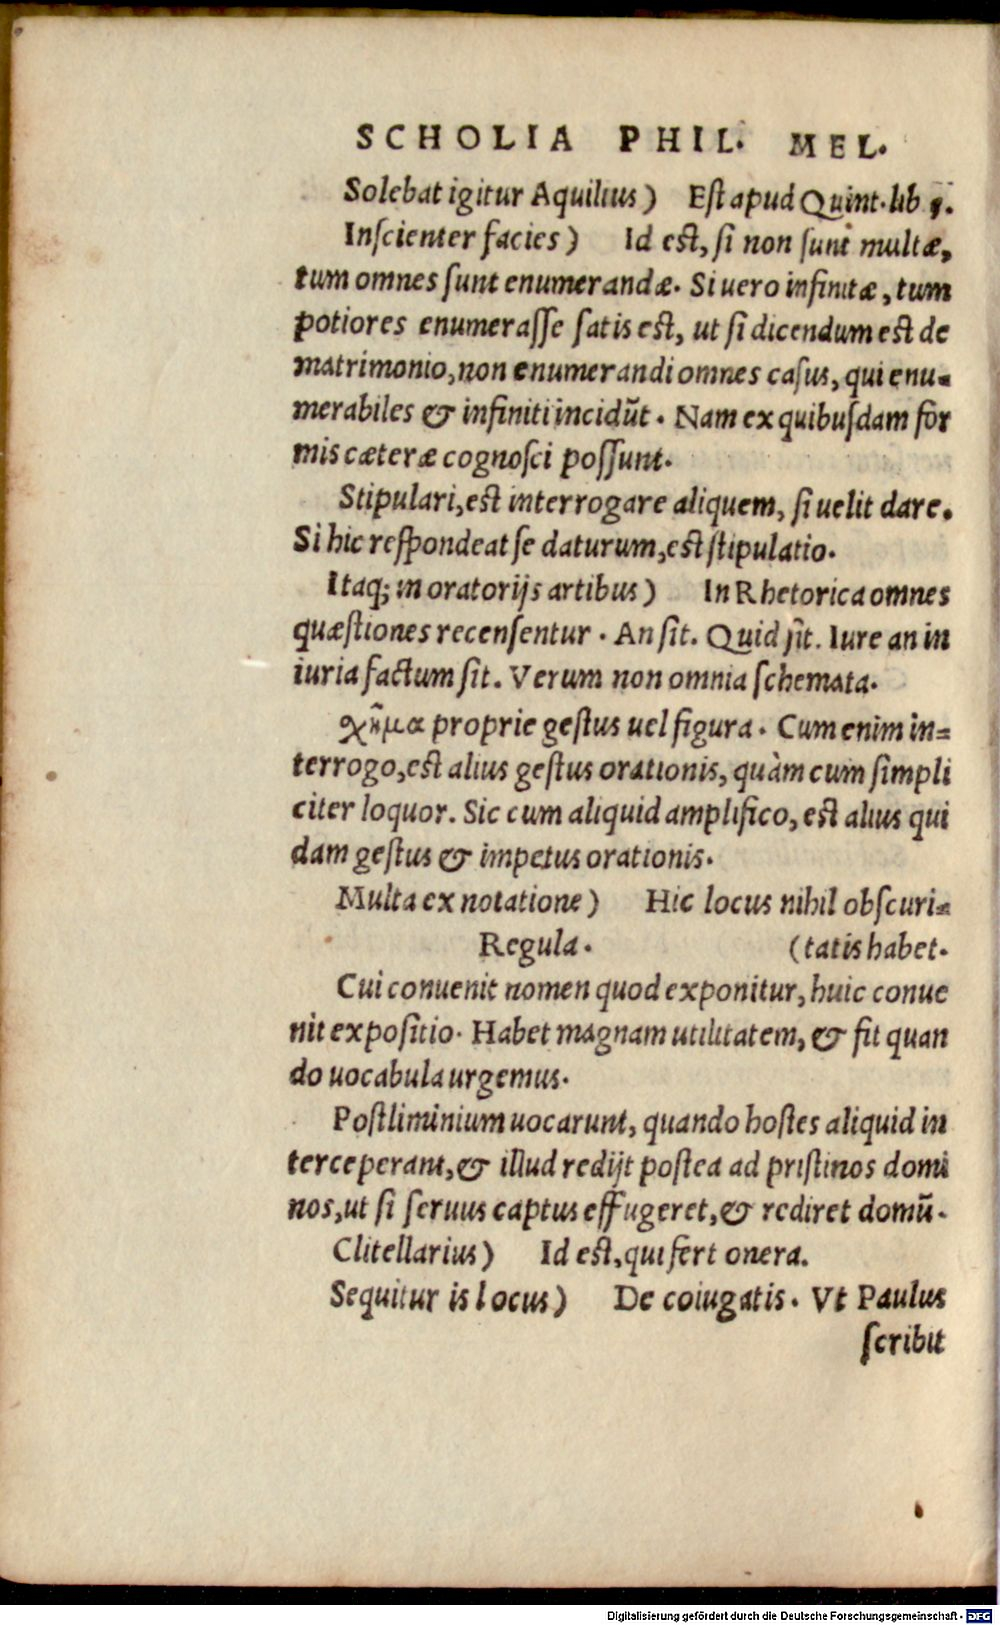 SCHOLIA PHIL. MEL.
Solebat igitur Aquilius) Est apud Quint. lib
Inscienter facies) Id est, si non sunt multæ,
tum omnes sunt enumerandæ. Si uero infinitæ, tum
potiores enumerasse satis est, ut si dicendum est de
matrimonio, non enumerandi omnes casus, qui enu-
merabiles & infiniti incidũt. Nam ex quibusdam for
mis cæteræ cognosci possunt.
Stipulari, est interrogare aliquem, si uelit dare.
Si hic respondeat se daturum, est stipulatio.
Itaq; in oratorijs artibus) In Rhetorica omnes
quæstiones recensentur. An sit. Quid sit. Iure an in
iuria factum sit. Verum non omnia schemata.
σχῆμα proprie gestus uel figura. Cum enim in-
terrogo, est alius gestus orationis, quàm cum simpli
citer loquor. Sic cum aliquid amplifico, est alius qui
dam gestus & impetus orationis.
Multa ex notatione) Hic locus nihil obscuri-
Regula. (tatis habet.
Cui conuenit nomen quod exponitur, huic conue
nit expositio. Habet magnam utilitatem, & fit quan
do uocabula urgemus.
Postliminium uocarunt, quando hostes aliquid in
terceperant, & illud redijt postea ad pristinos domi
nos, ut si seruus captus effugeret, & rediret domũ.
Clitellarius) Id est, qui fert onera.
Sequitur is locus) De coiugatis. Vt Paulus
scribit
Digitalisierung gefördert durch die Deutsche Forschungsgemeinschaft - DFG